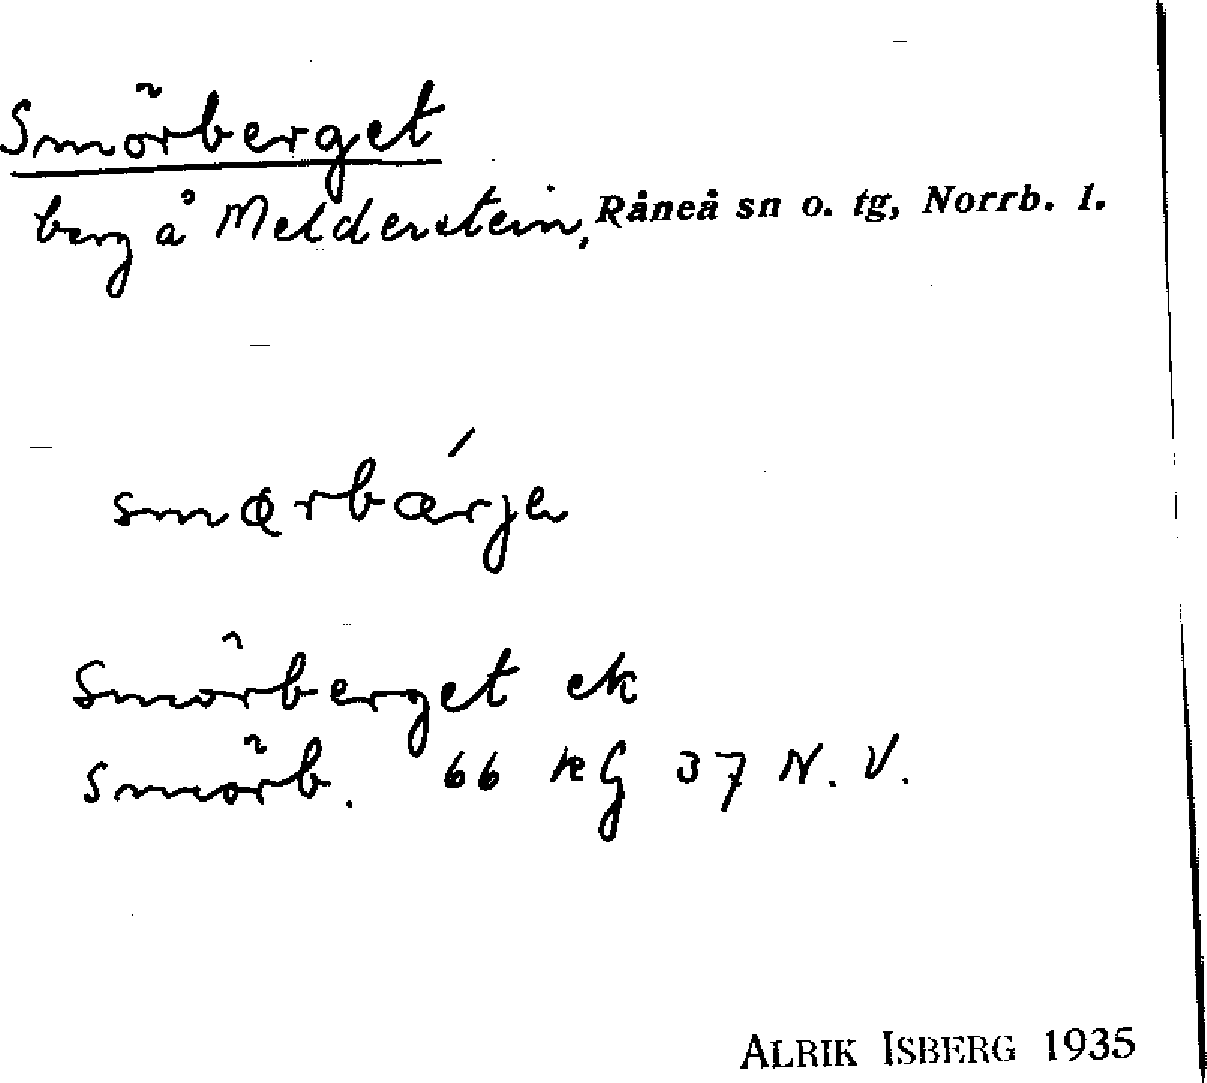 Smörberget
berg å Melderstein, Råneå sn o. tg, Norrb. l.
smœrbǽrjen
Smörberget ek
Smörb. 66 kG 37 N. V.
ALRIK ISBERG 1935